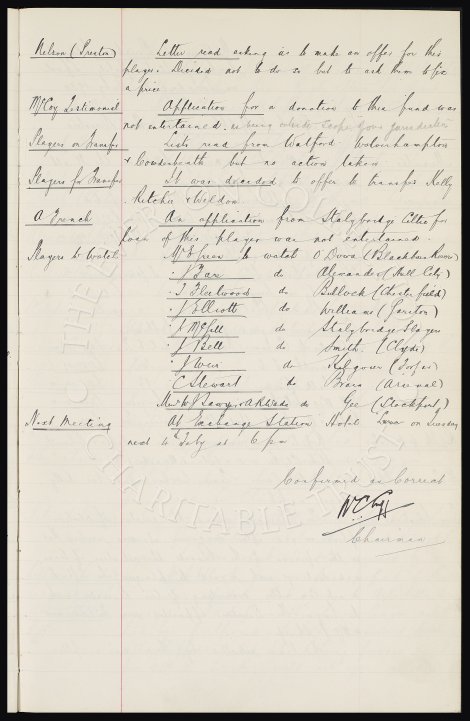 Nelson (Preston) Letter read asking us to make an offer for this
player. Decided not to do so but to ask them to fix
a price
McCoy Testimonial Application for a donation to this fund was
not entertained. as being outside scope of our jurisdiction
Players on Transfer Lists read from Watford, Wolverhampton
& Cowdenbeath but no action taken
Players for Transfer It was decided to offer to transfer Kelly
Ritchie & Weldon
A. French An application from Stalybridge Celtic for
loan of this player was not entertained.
Players to Watch Mr Green to watch O'Dowd (Blackburn Rovers)
" Barr do Alexander (Hull City)
" J Fleetwood do Bullock (Chesterfield)
" Elliott do Williams
" do Stalybridge Players
" J Bell do Smith (Clyde)
" Weir do
C Stewart do (Arsenal)
Messrs W Sawyer & do Gee (Stockport)
Next Meeting At Exchange Station Hotel on Tuesday
next 4 July at 6 pm
Confirmed as Correct
Chairman
THE EVERTON COLLECTION
CHARITABLE TRUST